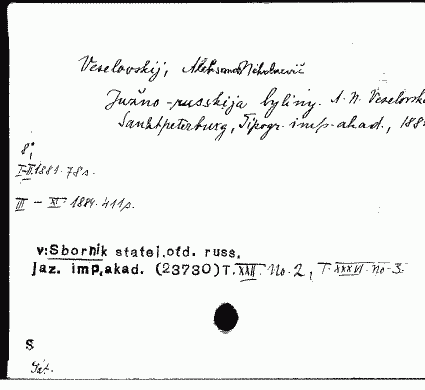 Veselovskij, Aleksandr Nikolaevič
Južno-russkija byliny. A. N. Veselovsk
Sanktpeterburg, Tipogr. imp. akad., 188
8°,
I-II. 1881. 78 s.
III - XI. 1884. 411 p.
v: Sbornik statej. otd. russ.
jaz. imp. akad. (23730) T. XXII. No. 2, T. XXXVI. No-3.
S